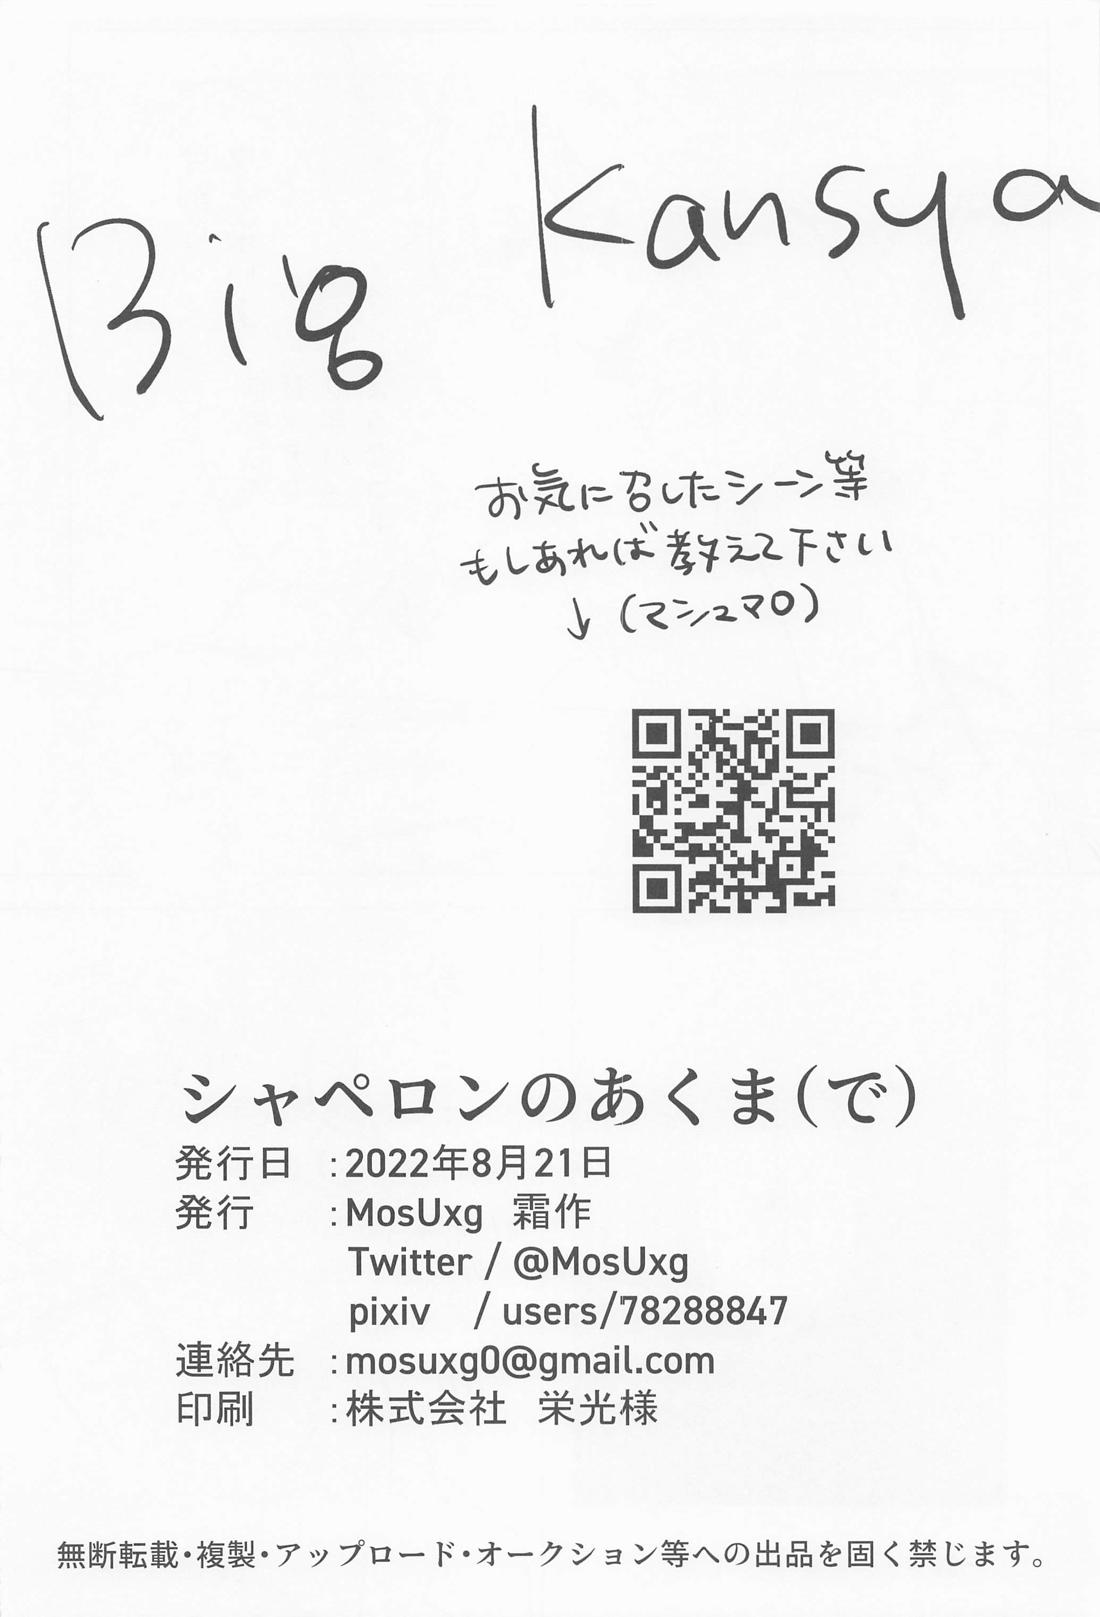 Big Kansya
お気に召したシーン等
もしあれば教えて下さい
↓(マシュマロ)
シャペロンのあくま(で)
発行日 :2022年8月21日
発行 :MosUxg 霜作
Twitter / @MosUxg
pixiv / users/78288847
連絡先 :mosuxg0@gmail.com
印刷 :株式会社 栄光様
無断転載・複製・アップロード・オークション等への出品を固く禁じます。